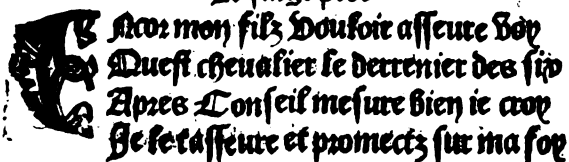 Encor mon filz Bouloir asseure Boy
Quest chevalier le derrenier des six
Apres Conseil mesure bien ie croy
Je te lasseure et promectz sur ma foy